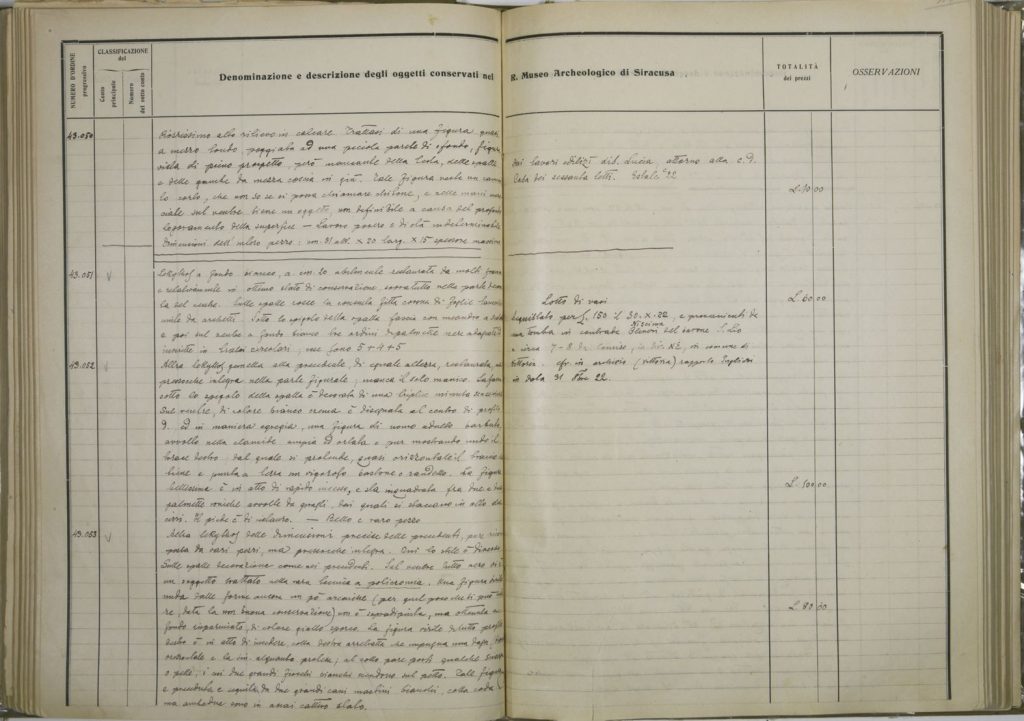 NUMERO D'ORDINE
progressivo
CLASSIFICAZIONE
del
Conto
principale
Numero
del sotto conto
Denominazione e descrizione degli oggetti conservati nel R. Museo Archeologico di Siracusa
TOTALITÀ
dei prezzi
OSSERVAZIONI
43.050
alto rilievo in calcare. Trattasi di una figura quasi
a mezzo tondo, poggiata ad una piccola parete di sfondo, figura
vista di pieno prospetto, però mancante della testa, delle spalle
e delle gambe da mezza coscia in giù. Tale figura veste un
lo corto, che non so se si possa chiamare chitone, e nelle mani
sul ventre tiene un oggetto, non definibile a causa del profondo
logoramento della superfice — Lavoro povero e di età indeterminabile
Dimensioni dell'intero pezzo: cm. 31 alt. × 20 larg. × 15 spessore massimo
Dai lavori edilizi di S. Lucia, attorno alla c.d.
Casa dei sessanta letti. Estate '22
L. 10 00
43.051
Lekythos a fondo bianco, a cm. 20 abilmente restaurata da molti
e relativamente in ottimo stato di conservazione, sopratutto nella parte
del ventre. Sulle spalle rosse la consueta fitta corona di foglie
da archetti. Sotto lo spigolo della spalla fascia con meandro a
e poi sul ventre a fondo bianco tre ordini di palmette nere
inscritte in circolari; ne sono 5 + 4 + 5
Lotto di vasi
acquistato per £ 150 il 30.X.22, e provenienti da
una tomba in contrada del barone S. Lio
a circa 7-8 da Comiso, in dir. NE, in comune di
Vittoria. cfr. in archivio (Vittoria) rapporto
in data 31 22.
L. 60 00
43.052
Altra lekythos gemella alla precedente, di eguale altezza, restaurata, ma
pressochè integra nella parte figurale; manca il solo manico. La fascia
sotto lo spigolo della spalla è decorata di una triplice minuta
Sul ventre, di colore bianco crema è disegnata al centro di profilo
d. ed in maniera egregia, una figura di uomo adulto barbato,
avvolto nella clamide ampia ed orlata e pur mostrando nudo il
braccio destro dal quale si protende, quasi orizzontale il braccio che
tiene e punta a terra un vigoroso bastone o randello. La figura
bellissima è in atto di rapido incesso, e sta inquadrata fra due
palmette avvolte da giragli, dai quali si staccano in alto
Il piede è di restauro. — Bello e raro pezzo
L. 100 00
43.053
Altra lekythos delle dimensioni precise delle precedenti, pure
posta da vari pezzi, ma pressochè integra. Qui lo stile è diverso
Sulle spalle decorazione come nei precedenti. Sul ventre tutto nero
un soggetto trattato nella rara tecnica a policromia. Una figura virile
nuda dalle forme ancora un pò arcaiche (per quel poco che si può
re, data la non buona conservazione) non è sopradipinta, ma ottenuta a
fondo risparmiato, di colore giallo sporco. La figura virile di tutto profilo
destro è in atto di incedere, colla destra arretrata che impugna una
orizzontale e la sin. alquanto protesa; al collo pare porti qualche
o pelle; i cui due grandi fiocchi bianchi scendono sul petto. Tale figura
è preceduta e seguita da due grandi cani mastini bianchi, colla coda
ma ambedue sono in assai cattivo stato.
L. 80 00